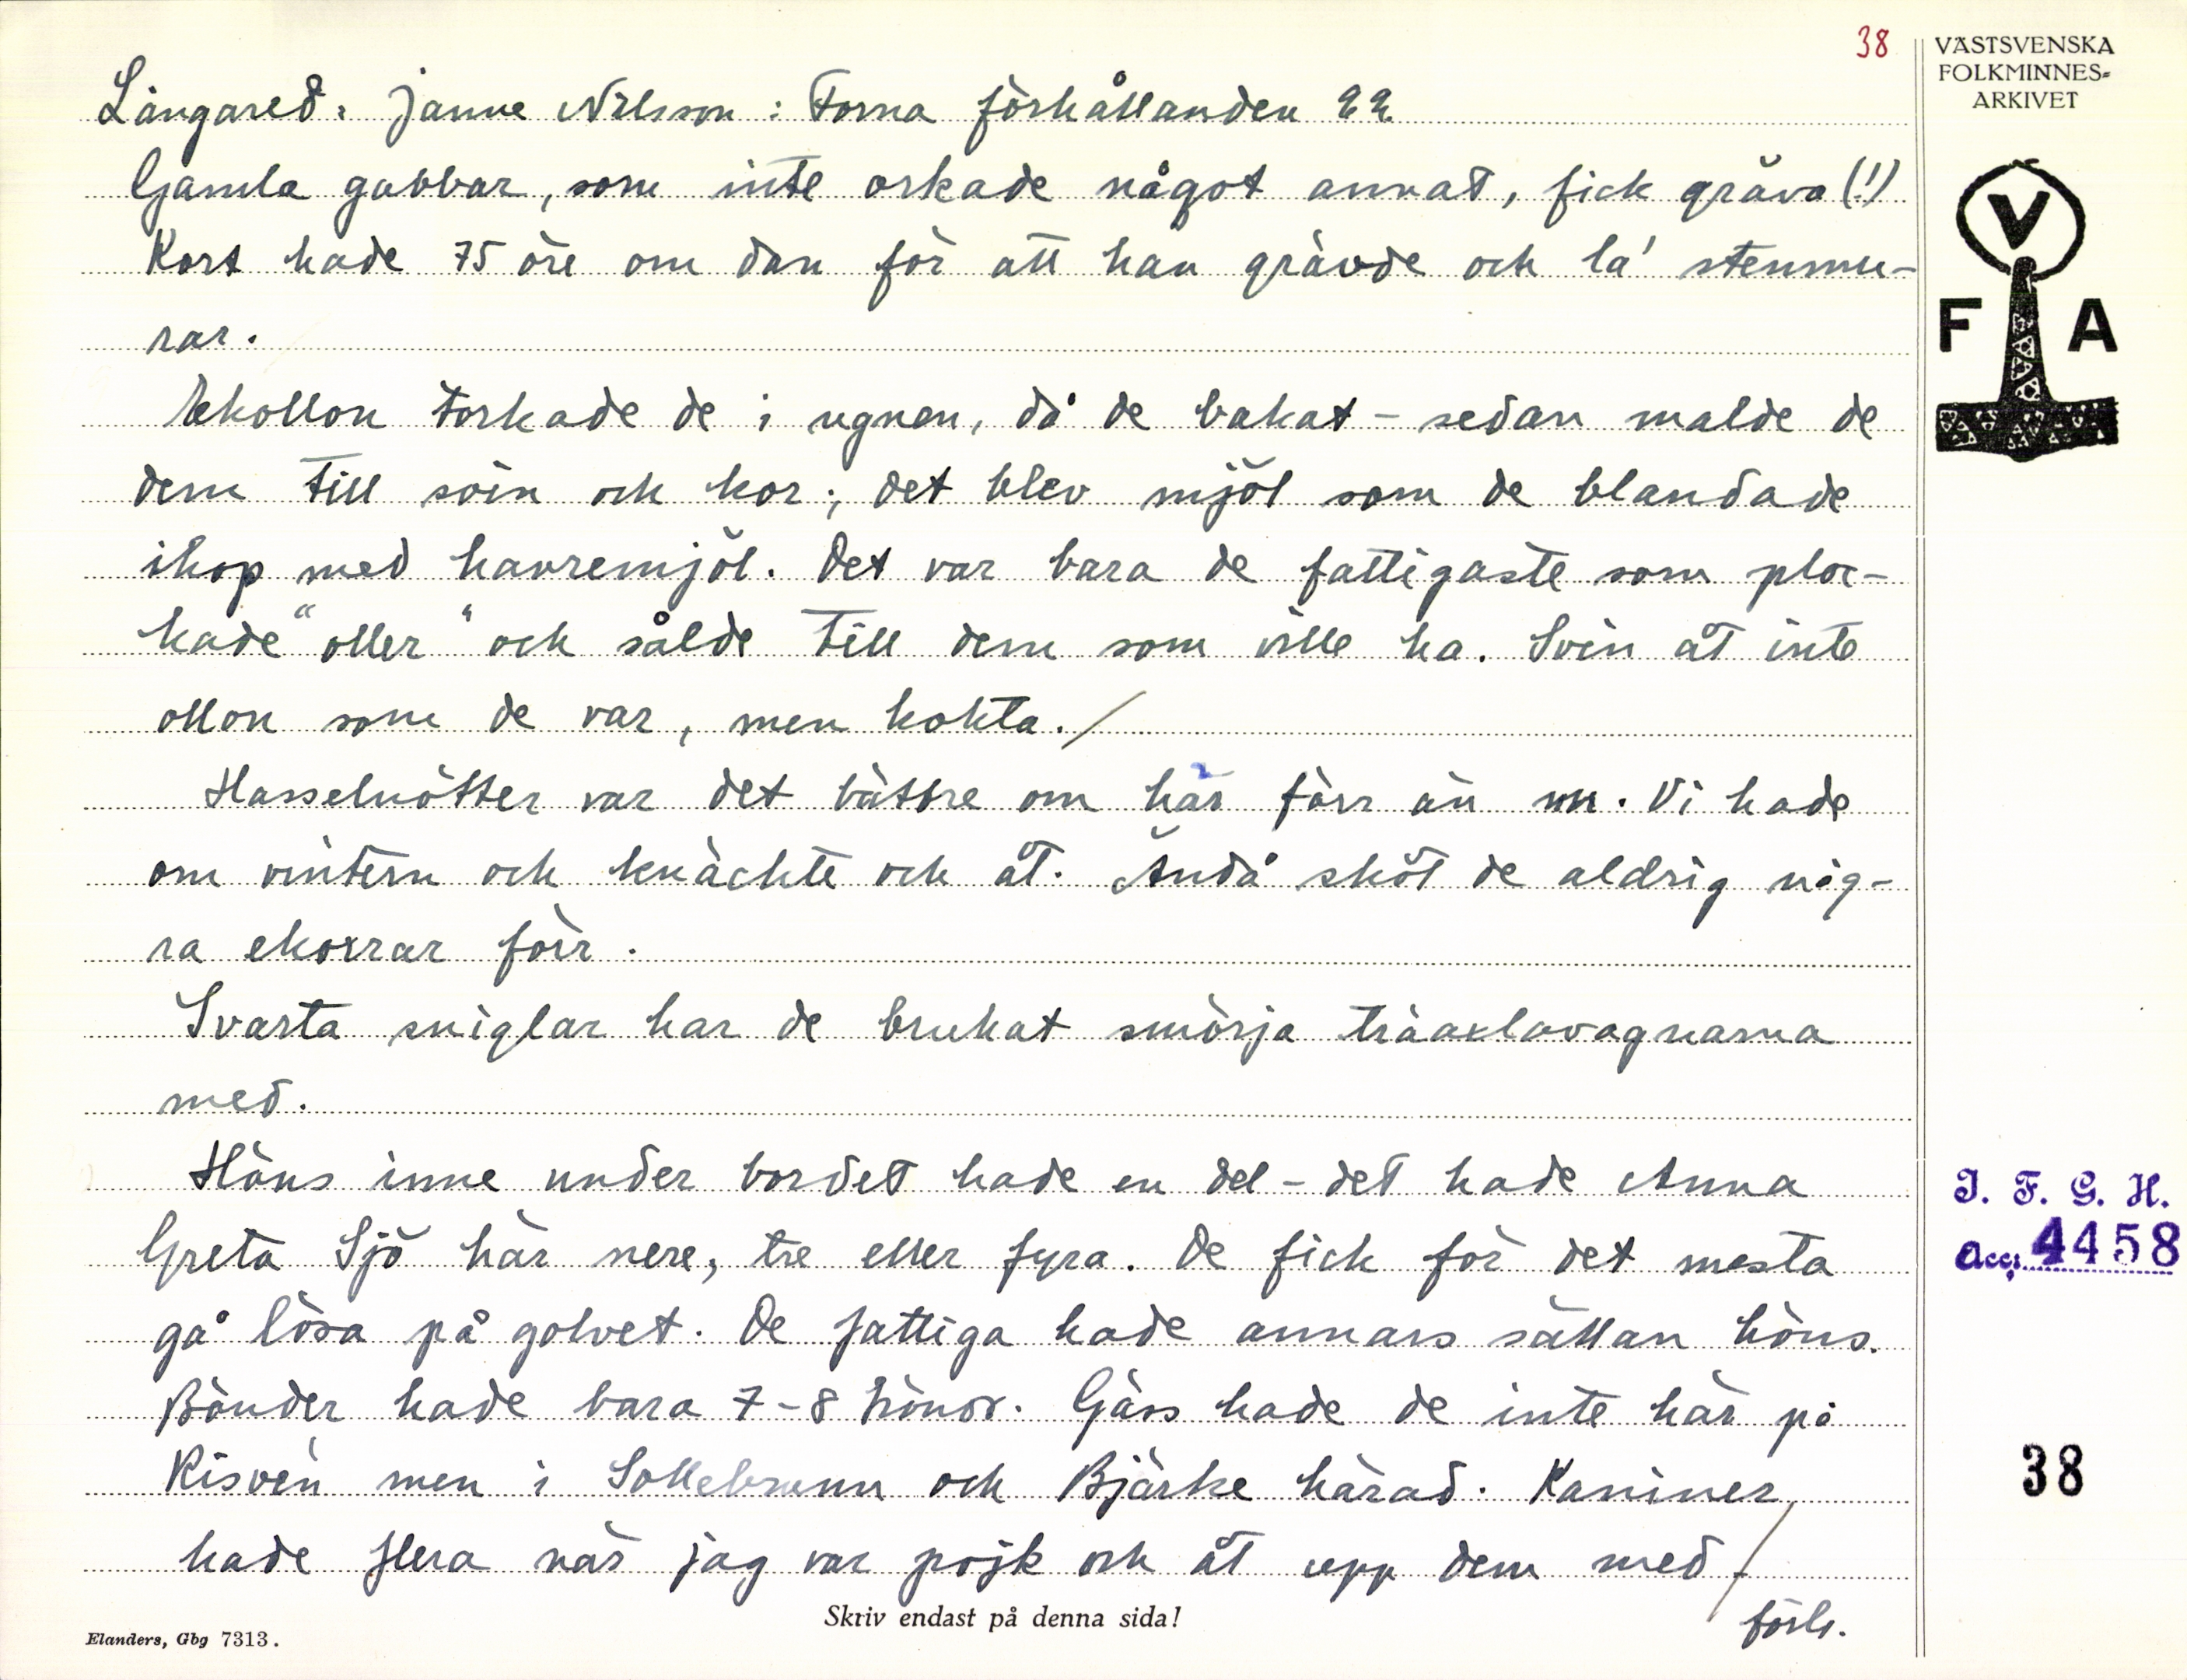 38
VÄSTSVENSKA
FOLKMINNES-
ARKIVET
Långared: Janne Nilsson: Forna förhållanden 22
Gamla gubbar, som inte orkade något annat, fick gräva (!)
Kort hade 75 öre om dan för att han grävde och la' stenmu-
rar.
Ekollon torkade de i ugnen, då de bakat - sedan malde de
dem till svin och kor; det blev mjöl som de blandade
ihop med havremjöl. Det var bara de fattigaste som ploc-
kade "oller" och sålde till dem som ville ha. Svin åt inte
ollon som de var, men kokta./
Hasselnötter var det bättre om här förr än nu. Vi hade
om vintern och knäckte och åt. Ändå sköt de aldrig någ-
ra ekorrar förr.
Svarta sniglar har de brukat smörja träaxlavagnarna
med.
Höns inne under bordet hade en del - det hade Anna
Greta Sjö här nere, tre eller fyra. De fick för det mesta
gå lösa på golvet. De fattiga hade annars sällan höns.
Bönder hade bara 7-8 hönor. Gäss hade de inte här på
Risven men i Sollebrunn och Bjärke härad. Kaniner
hade flera när jag var pojk och åt upp dem med /
forts.
V
F A
I. F. G. H.
Acc: 4458
38
Skriv endast på denna sida!
Elanders, Gbg 7313.